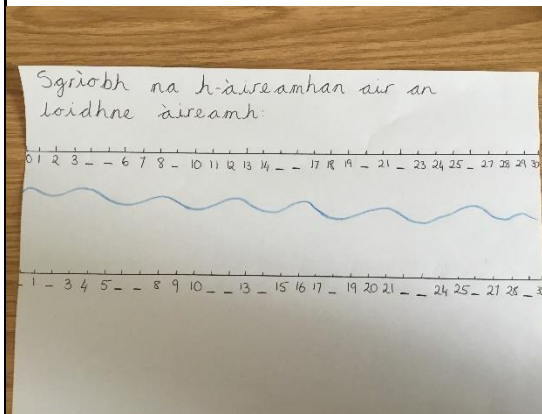 Sgrìobh na h-àireamhan air an
loidhne àireamh:
0 1 2 3 _ _ 6 7 8 _ 10 11 12 13 14 _ _ 17 18 19 _ 21 _ 23 24 25 _ 27 28 29 30
_ 1 _ 3 4 5 _ _ 8 9 10 _ _ 13 _ 15 16 17 _ 19 20 21 _ _ 24 25 _ 27 28 _